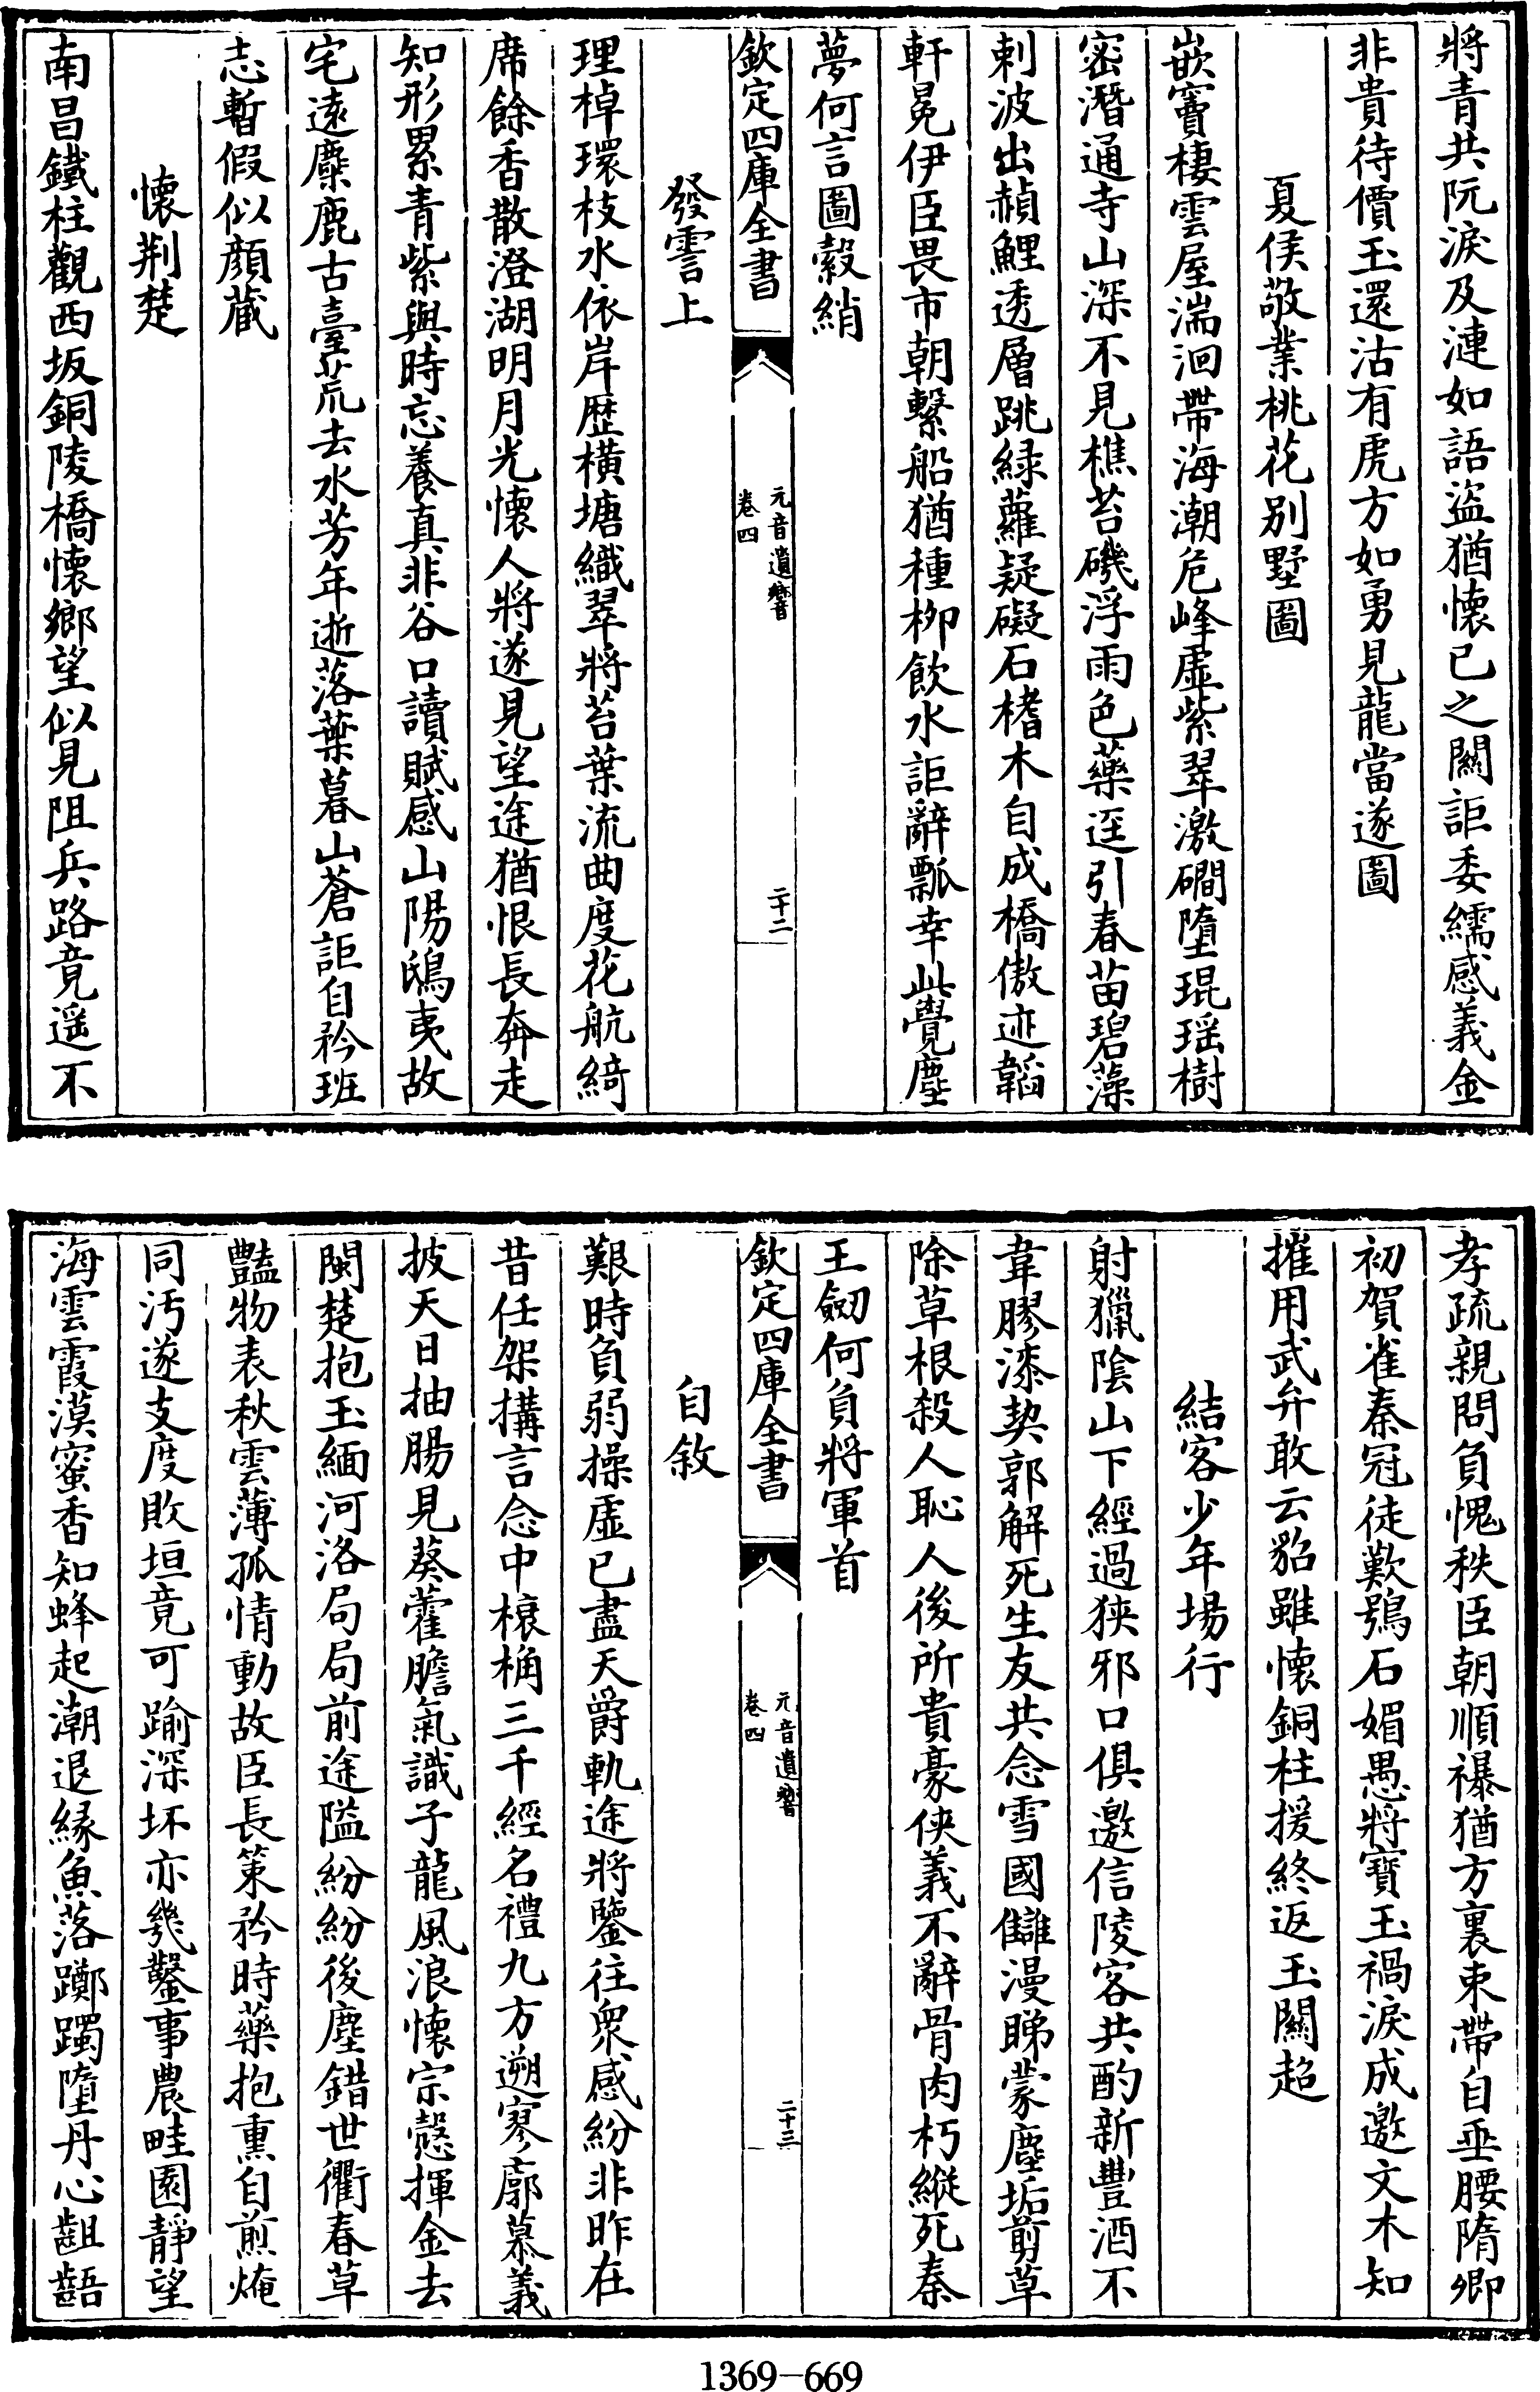 將青共阮淚及漣如語盜猶懷已之關詎委繻感義金
非貴待價玉還沽有虎方如勇見龍當遂圖
夏侯敬業桃花别墅圖
嵌竇棲雲屋湍洄帶海潮危峰虛紫翠激磵墮琨瑶樹
密潛通寺山深不見樵苔磯浮雨色藥逕引春苗碧藻
刺波出赬鯉透層跳緑蘿疑礙石榰木自成橋傲迹韜
軒冕伊臣畏市朝繫船猶種栁飲水詎辭瓢幸此覺塵
夢何言圖縠綃
欽定四庫全書
元音遺響
卷四
二十二
發霅上
理棹環枝水依岸歴橫塘織翠將苔葉流曲度花航綺
席餘香散澄湖明月光懷人將遂見望途猶恨長奔走
知形累青紫與時忘養真非谷口讀賦感山陽鴟夷故
宅遠麋鹿古臺荒去水芳年逝落葉暮山蒼詎自矜班
志暫假似顏藏
懷荆楚
南昌鐵柱觀西坂銅陵橋懷鄉望似見阻兵路竟遥不
孝疏親問負愧秩臣朝順襮猶方裏束帶自垂腰隋卿
初賀雀秦冠徒歎鴞石媚愚將寶玉禍淚成邀文木知
摧用武弁敢云貂雖懷銅柱援終返玉關超
結客少年場行
射獵隂山下經過狹邪口俱邀信陵客共酌新豐酒不
韋膠漆契郭解死生友共念雪國讎漫睇蒙塵垢剪草
除草根殺人恥人後所貴豪俠義不辭骨肉朽縱死秦
王劒何負將軍首
欽定四庫全書
元音遺響
卷四
二十三
自敘
艱時負弱操虛已盡天爵軌途將鑒往衆感紛非昨在
昔任架搆言念中榱桷三千經名禮九方遡寥廓慕義
披天日抽腸見葵藿膽氣識子龍風浪懷宗慤揮金去
閩楚抱玉緬河洛局局前途隘紛紛後塵錯世衢春草
豔物表秋雲薄孤情動故臣長策矜時藥抱熏自煎㷈
同汚遂支度敗垣竟可踰深坏亦幾鑿事農畦園靜望
海雲霞漠蜜香知蜂起潮退緣魚落躑躅墮丹心齟齬
1369-669